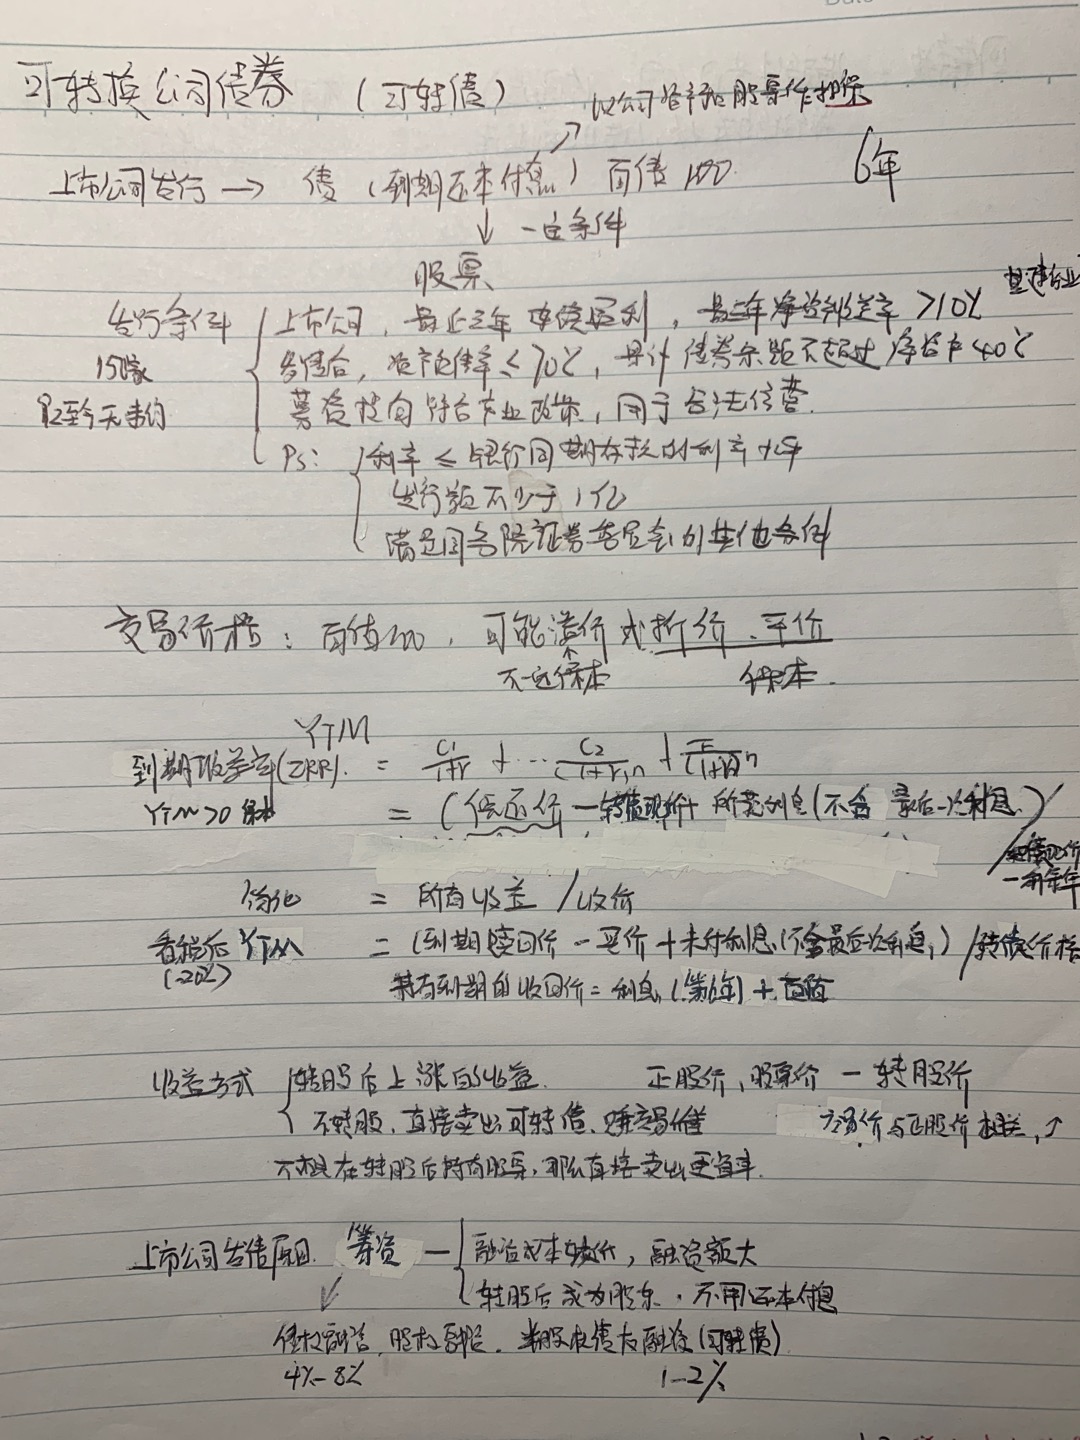 可转换公司债券 (可转债)
以公司资产和股票作担保
上市公司发行 → 债 (到期还本付息) 面值 100 6年
↓ 一定条件
股票
基建行业
发行条件 上市公司, 最近三年连续盈利, 最近三年净资产收益率 >10%
150家 发债后, 资产负债率 ≤ 70%, 累计债券余额不超过净资产 40%
92至今无违约 募资投向符合产业政策, 用于合法经营.
Ps: 利率 ≤ 银行同期存款的利率水平
发行额不少于1亿
满足国务院证券委员会的其他条件
交易价格: 面值100, 可能溢价或折价、平价
不一定保本 保本.
YTM
到期收益率(IRR). = C1/1+r + … C2/(1+r)n + F/(1+r)n
YTM>0 保本 = (偿还价 - 转债现价 + 所有利息(不含最后一次利息))/
转债现价
剩余年
简化 = 所有收益 / 收价
看税后 YTM = (到期赎回价 - 买价 + 未付利息(不含最后一次利息)) / 转债价格
(-20%) 持有到期的收回价 = 利息(第6年) + 面值
收益方式 转股后上涨的收益. 正股价, 股票价 - 转股价
不转股, 直接卖出可转债, 赚交易价差 交易价与正股价相关, ↑
不想在转股后持有股票, 那么直接卖出更省事.
上市公司发债原因. 筹资 — 融资成本较低, 融资额大
转股后成为股东, 不用还本付息
债权融资, 股权融资. 半股权债权融资(可转债)
4%-8% 1-2%